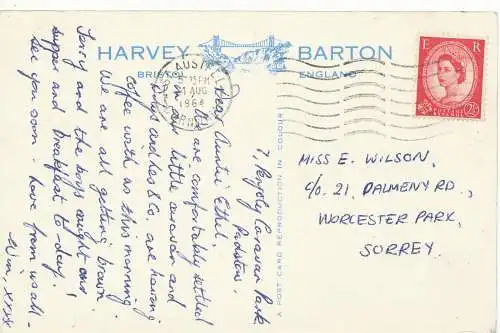 HARVEY BARTON
BRISTOL ENGLAND
ST AUSTELL
PM
1 AUG
1964
CORNWALL
E R
POSTAGE REVENUE
2½D
A POST CARD REPRODUCTION IN COLOUR
Caravan Park
Padstow.
Dear Auntie Ethel,
We are comfortably settled
in our little caravan and
Les & Co. are having
coffee with us this morning.
We are all getting brown.
Terry and the boys caught our
supper and breakfast to-day!
See you soon - love from us all
Win, xxxx
MISS E. WILSON,
C/O. 21, DALMENY RD.,
WORCESTER PARK,
SURREY.